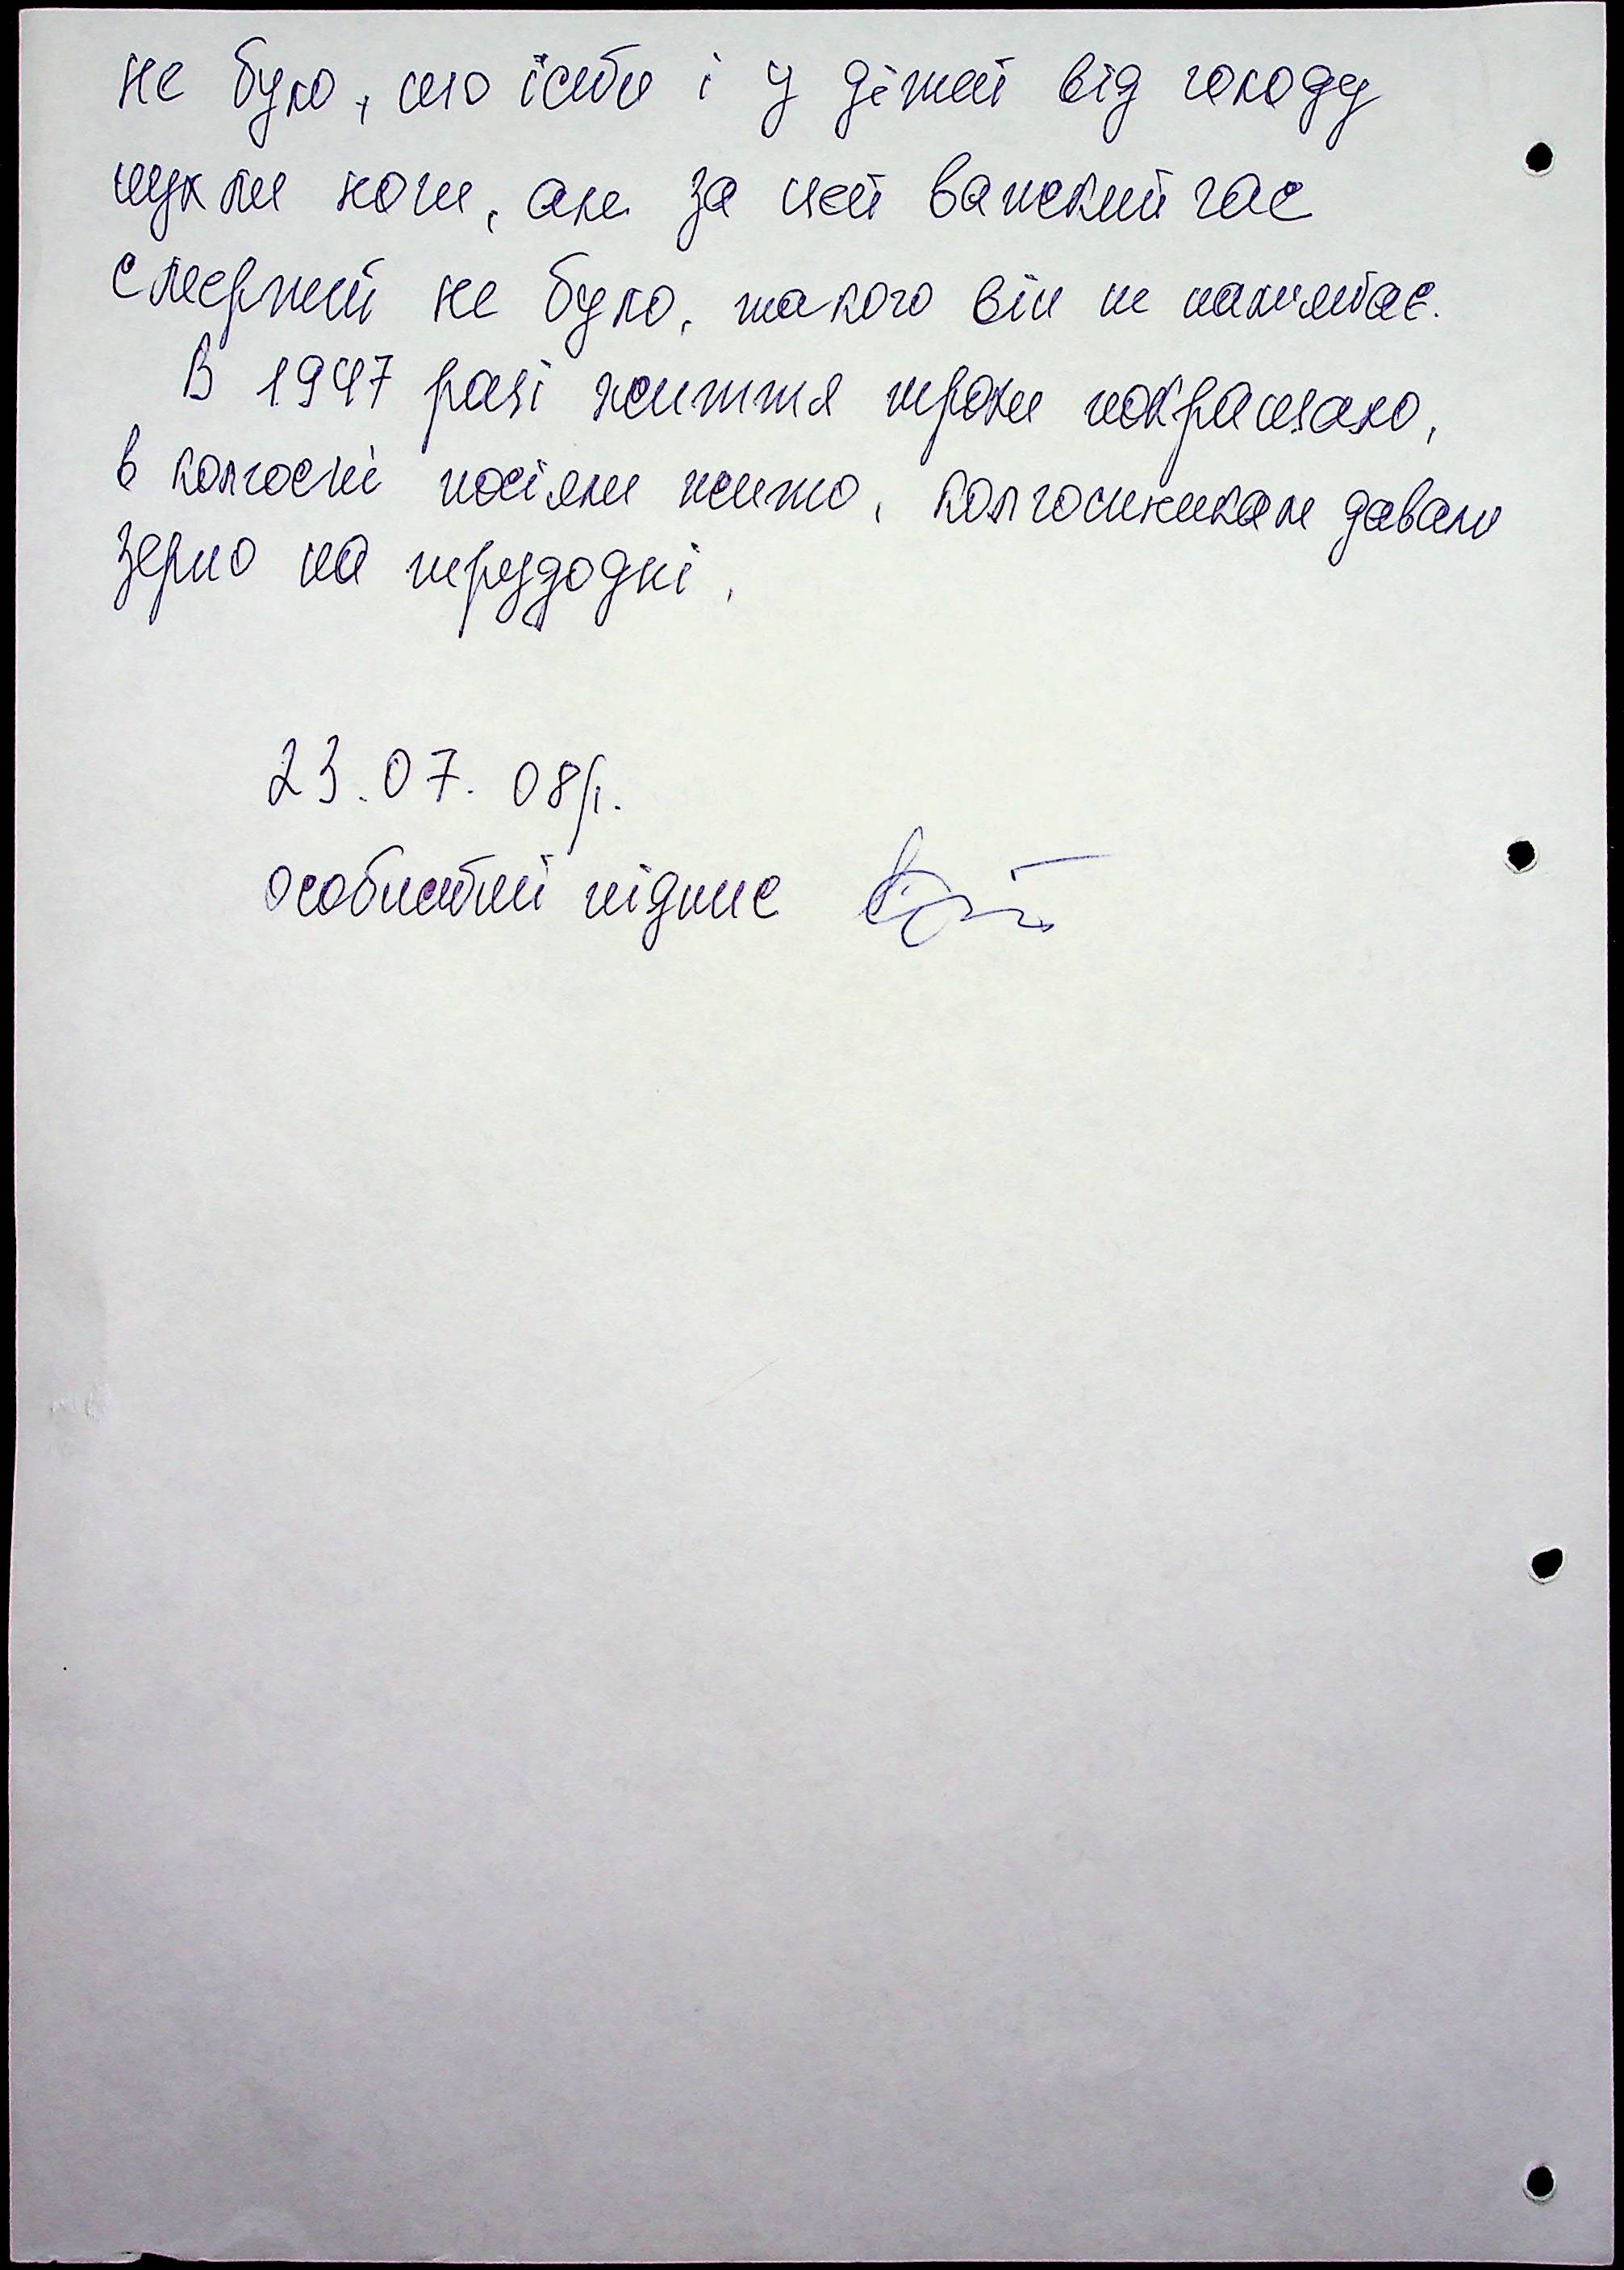 не було, що їсти і у дітей від голоду
пухли ноги, але за цей важкий час
смертей не було, такого він не пам'ятає.
В 1947 році життя трохи покращало,
в колгоспі посіяли жито, колгоспникам давали
зерно на трудодні.
23.07.08р.
особистий підпис